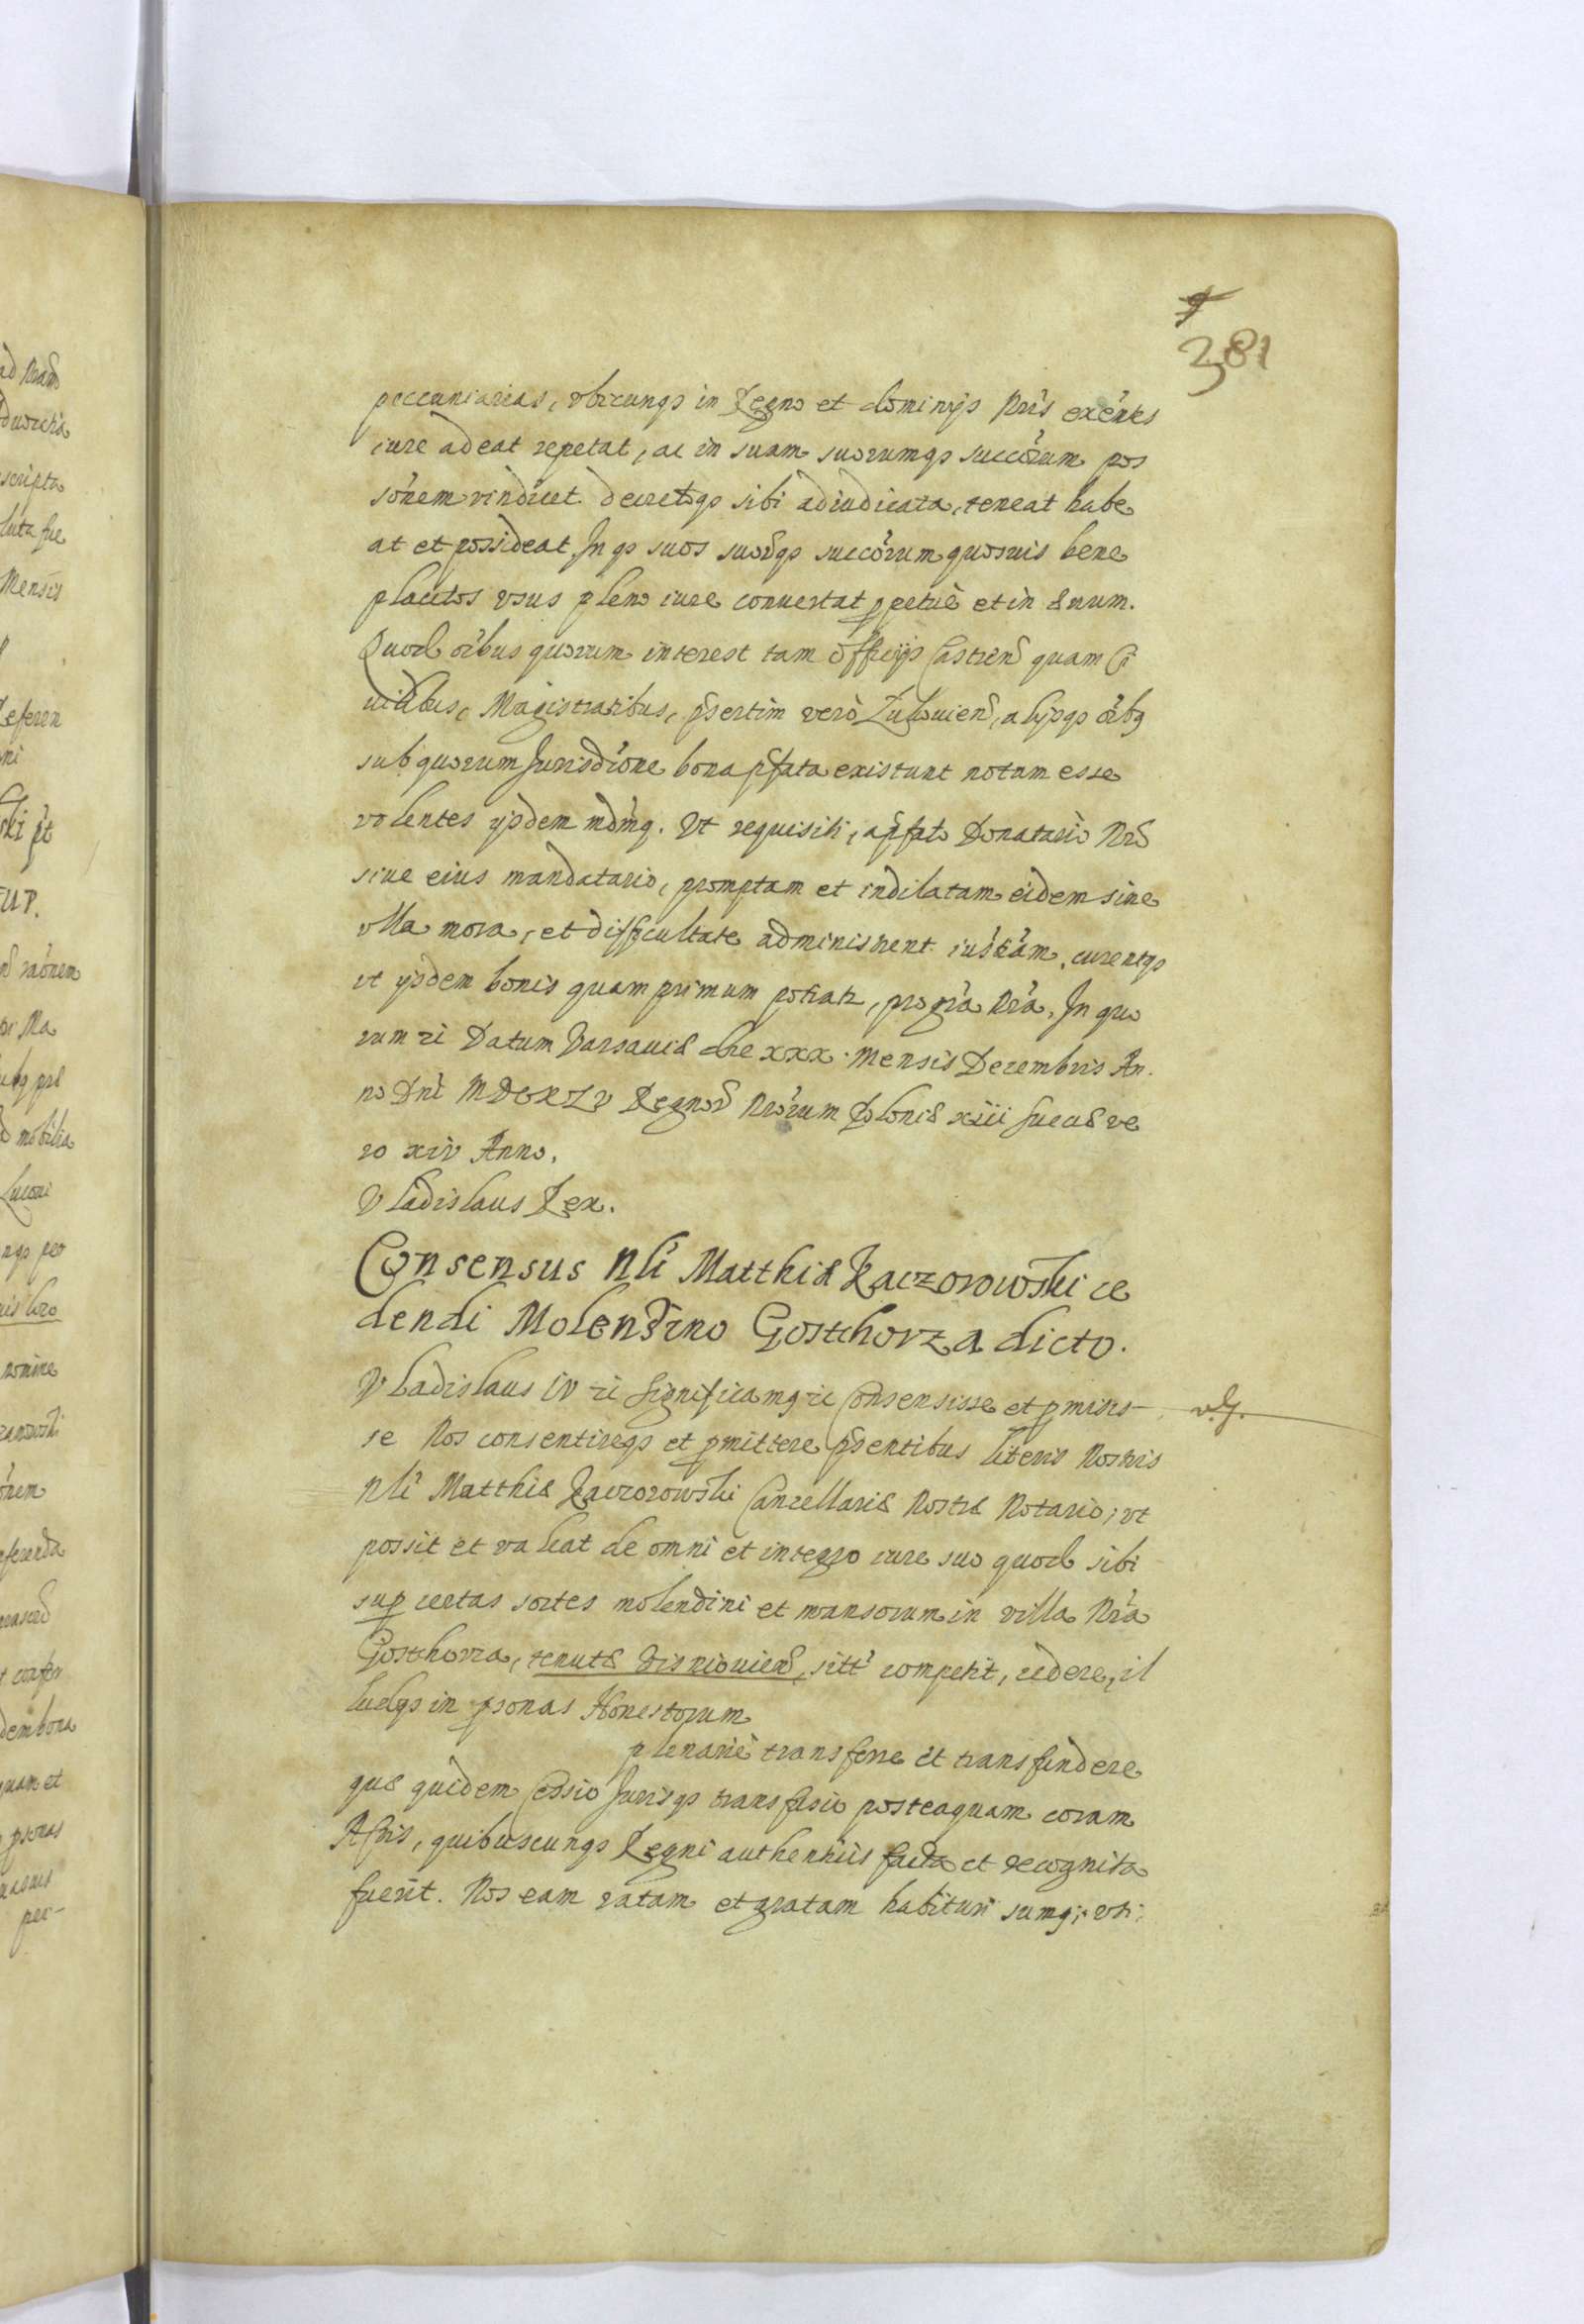 381
peccuniarias, vbicunqs in Regno et dominijs Nris exентes
iure adeat repetat, ac in suam suorumqs succorum pos
sonem vindicet decretoqs sibi adiudicata, teneat habe
at et possideat. In qs suos suorqs succorum quosuis bene
placitos vsus pleno iure conuertat ppetue et in æuum.
Quod oibus quorum interest tam officijs Castren quam Ci
uilibus, Magistratibus, psertim vero Zukouien, alijsqs oibq
sub quorum Jurisdione bona pfata existunt notum esse
volentes ijsdem mdmq. Vt requisiti, a pfato Donatario Nro
siue eius mandatario, promptam et indilatam eidem sine
vlla mora, et difficultate administrent iustiam, curentqs
vt ijsdem bonis quam primum potiatr, pro gra Nra. In quo
rum ri Datum Varsauiæ die xxx. Mensis Decembris An.
no Dni MDCXLV Regnor Nrorum Poloniæ xiii Sueciæ ve
ro xiv Anno.
Vladislaus Rex.
Consensus Nli Matthiæ Kaczorowski ce
dendi Molendino Gostchorza dicto.
Vladislaus IV ri Significamq ri Consensisse et pmisis
se Nos consentireqs et pmittere psentibus literis Nostris
Nli Matthiæ Kaczorowski Cancellariæ Nostræ Notario, vt
possit et valeat de omni et integro iure suo quod sibi
sup certas sortes molendini et mansorum in villa Nra
Gostchorza, tenutæ Visniouien, sitt competit, cedere, il
ludqs in psonas Honestorum
plenarie transferre et transfundere
quæ quidem Cessio Jurisqs transfusio posteaquam coram
Actis, quibuscunqs Regni authenticis facta et recognita
fuerit. Nos eam ratam et gratam habituri sumq, vti